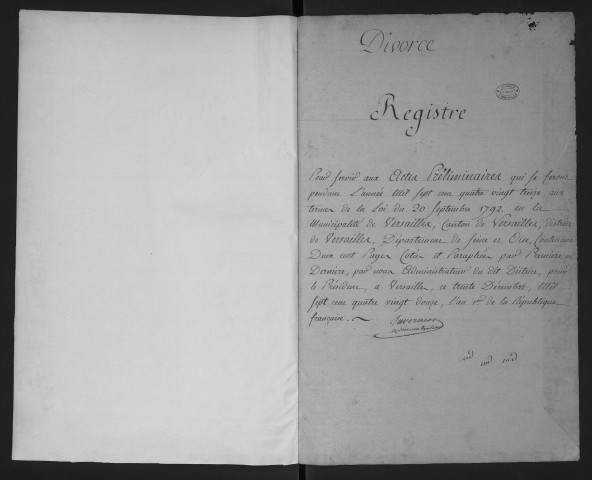 Divorce
Registre
Pour servir aux Actes Préliminaires qui se feront
pendant l'année Mil sept cent quatre vingt treize, aux
termes de la Loi du 20 Septembre 1792. en la
Municipalité de Versailles, Canton de Versailles, district
de Versailles, Département de Seine et Oise, Contenant
Deux cent Pages Cotées et Paraphées par Premiere et
Derniere, par nous Administrateur du dit District, pour
le Président, a Versailles, ce trente Décembre, Mil
sept cent quatre vingt douze, l'an 1er de la République
française.